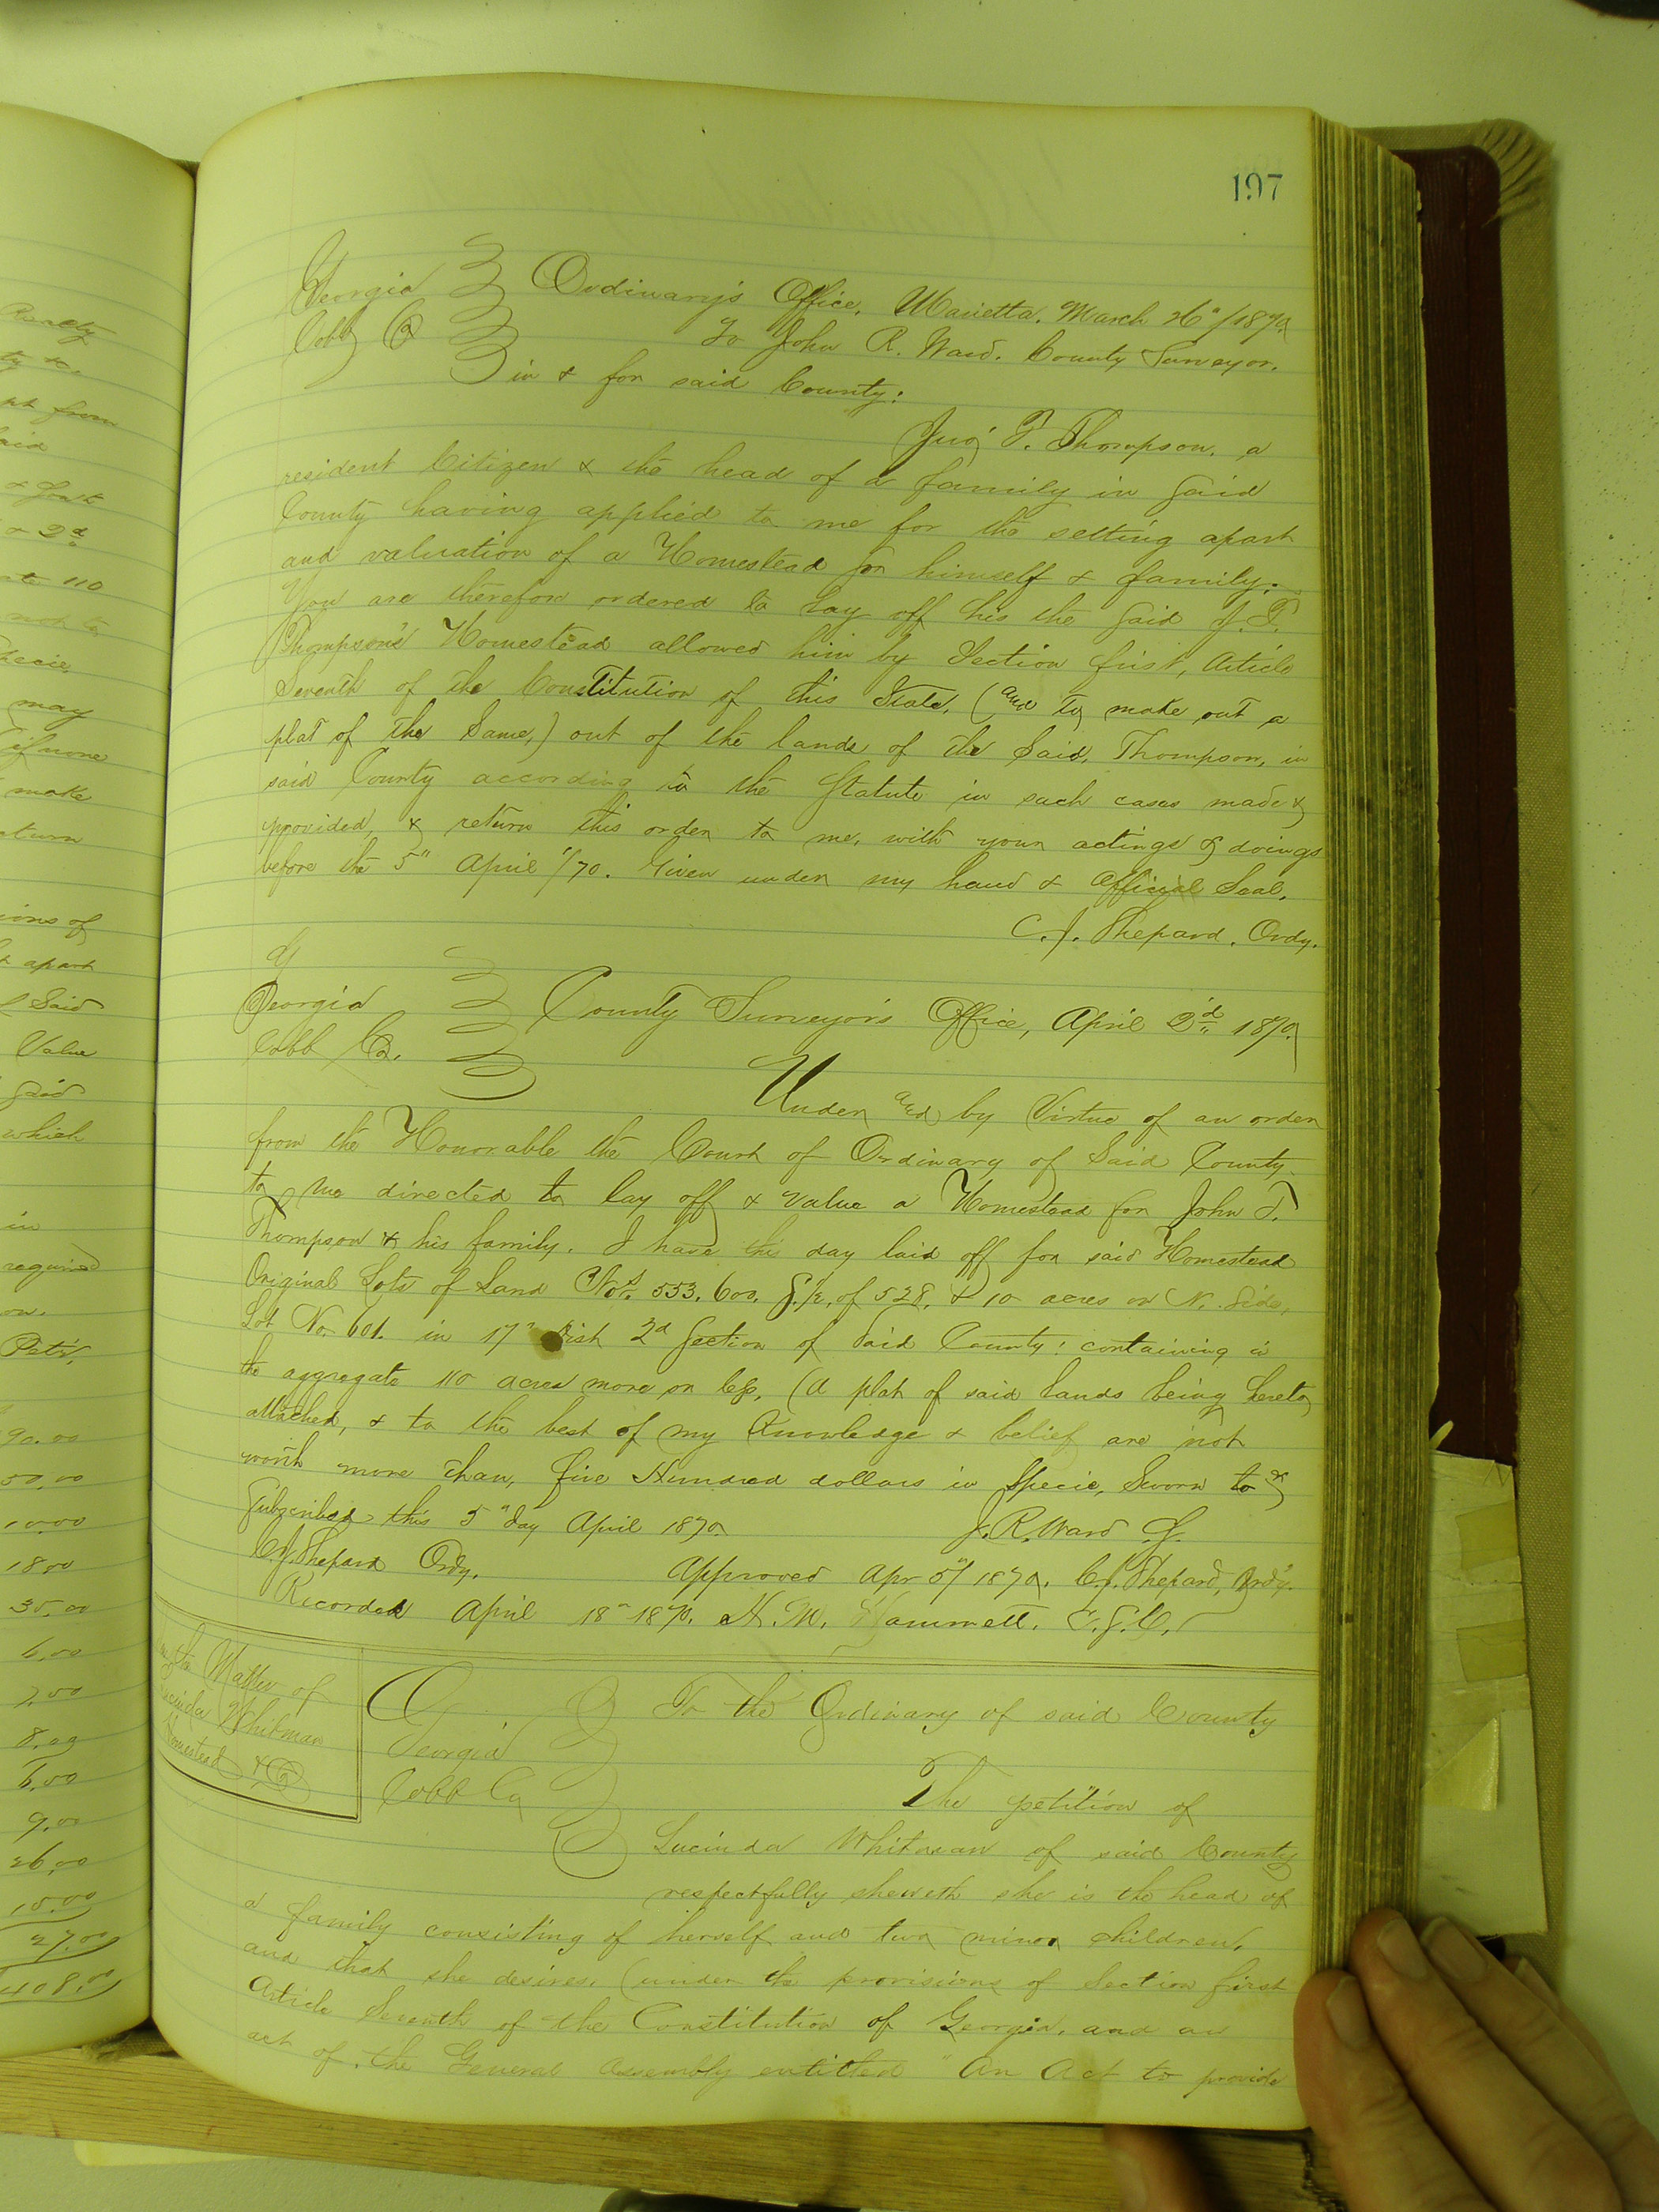 197
Georgia Ordinary's Office, Marietta. March 26" /1870.
Cobb Co To John R. Ward. County Surveyor.
in & for said County:
Jno. T. Thompson, a
resident Citizen & the head of a family in said
County having applied to me for the setting apart
and valuation of a Homestead for himself & family:
You are therefore ordered to lay off his the said J. T.
Thompson's Homestead allowed him by Section first, Article
Seventh of the Constitution of this State, (and to make out a
plat of the Same,) out of the lands of the Said, Thompson, in
said County according to the Statute in such cases made &
provided, & return this order to me, with your actings & doings
before the 5" April /70. Given under my hand & Official Seal.
C. J. Shepard. Ordy.
Georgia County Surveyor's Office, April 2d 1870.
Cobb Co.
Under and by Virtue of an order
from the Honorable the Court of Ordinary of Said County
to me directed to lay off & value a Homestead for John T.
Thompson & his family. I have this day laid off for said Homestead
Original Lots of Land Nos. 553. 600. S. 1/2. of 528. & 10 acres on N. Side,
Lot No. 601. in 17" Dist 2d Section of Said County: containing in
the aggregate 110 acres more or less, (a plat of said lands being hereto
attached, & to the best of my Knowledge & belief are not
worth more than, five Hundred dollars in Specie, Sworn to &
Subscribed this 5" day April 1870 J. R. Ward C. S.
C. J. Shepard Ordy. Approved Apr 5" 1870. C. J. Shepard, Ordy.
Recorded April 18" 1870. H. M. Hammett. C. S. C.
In the Matter of
Lucinda Whitman
Homestead &c
Georgia To the Ordinary of said County
Cobb Co The petition of
Lucinda Whitman of said County
respectfully sheweth she is the head of
a family consisting of herself and two minor children.
and that she desires, (under the provisions of Section first
Article Seventh of the Constitution of Georgia, and an
act of the General Assembly entitled "An Act to provide